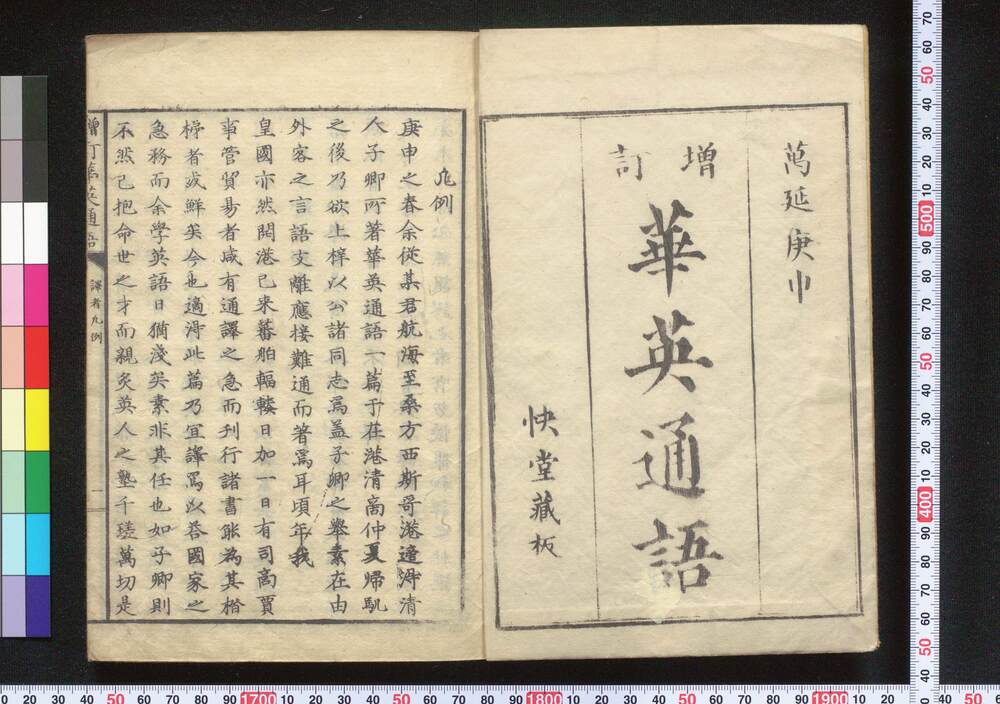 萬延庚申
增訂
華英通語
快堂藏板
凡例
庚申之春余從某君航海至桑方西斯哥港適得清
人子卿所著華英通語一篇于在港清商仲夏歸帆
之後乃欲上梓以公諸同志焉蓋子卿之舉素在由
外客之言語支離應接難通而著焉耳頃年我
皇國亦然開港已来蕃舶輻輳日加一日有司商賈
事管貿易者咸有通譯之急而刊行諸書能為其楷
梯者或鮮矣今也適得此篇乃宜譯焉以咨國家之
急務而余學英語日猶淺矣素非其任也如子卿則
不然已抱命世之才而親炙英人之塾千磋萬切是
增訂華英通語
譯者凡例
一